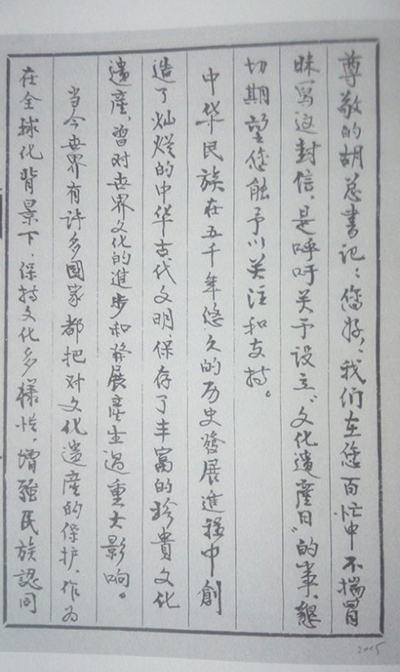 尊敬的胡总書记：您好，我们在您百忙中不揣冒
昧写这封信，是呼吁关于设立“文化遗產日”的事，懇
切期望您能予以关注和支持。
中华民族在五千年悠久的历史發展進程中創
造了灿烂的中华古代文明保存了丰富的珍貴文化
遗産，曾对世界文化的進步和發展產生过重大影响。
当今世界有许多國家都把对文化遗産的保护，作为
在全球化背景下，保持文化多樣性，增强民族認同
2005